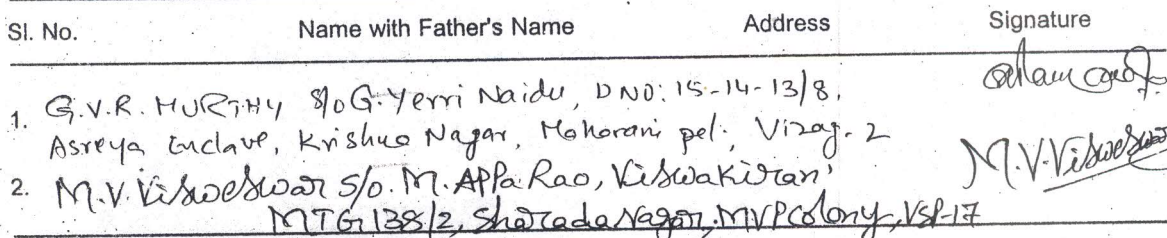 Sl. No. Name with Father's Name Address Signature
1. G.V.R. MURTHY S/o G. Yerri Naidu, D NO: 15-14-13/8,
Asreya Enclave, Krishna Nagar, Maharani pet. Vizag. 2
2. M.V. Visweswar S/o. M. Appa Rao, Viswakiran' M.V. Visweswar
MIG 138/2, Sharada Nagar, MVP Colony, VSP-17